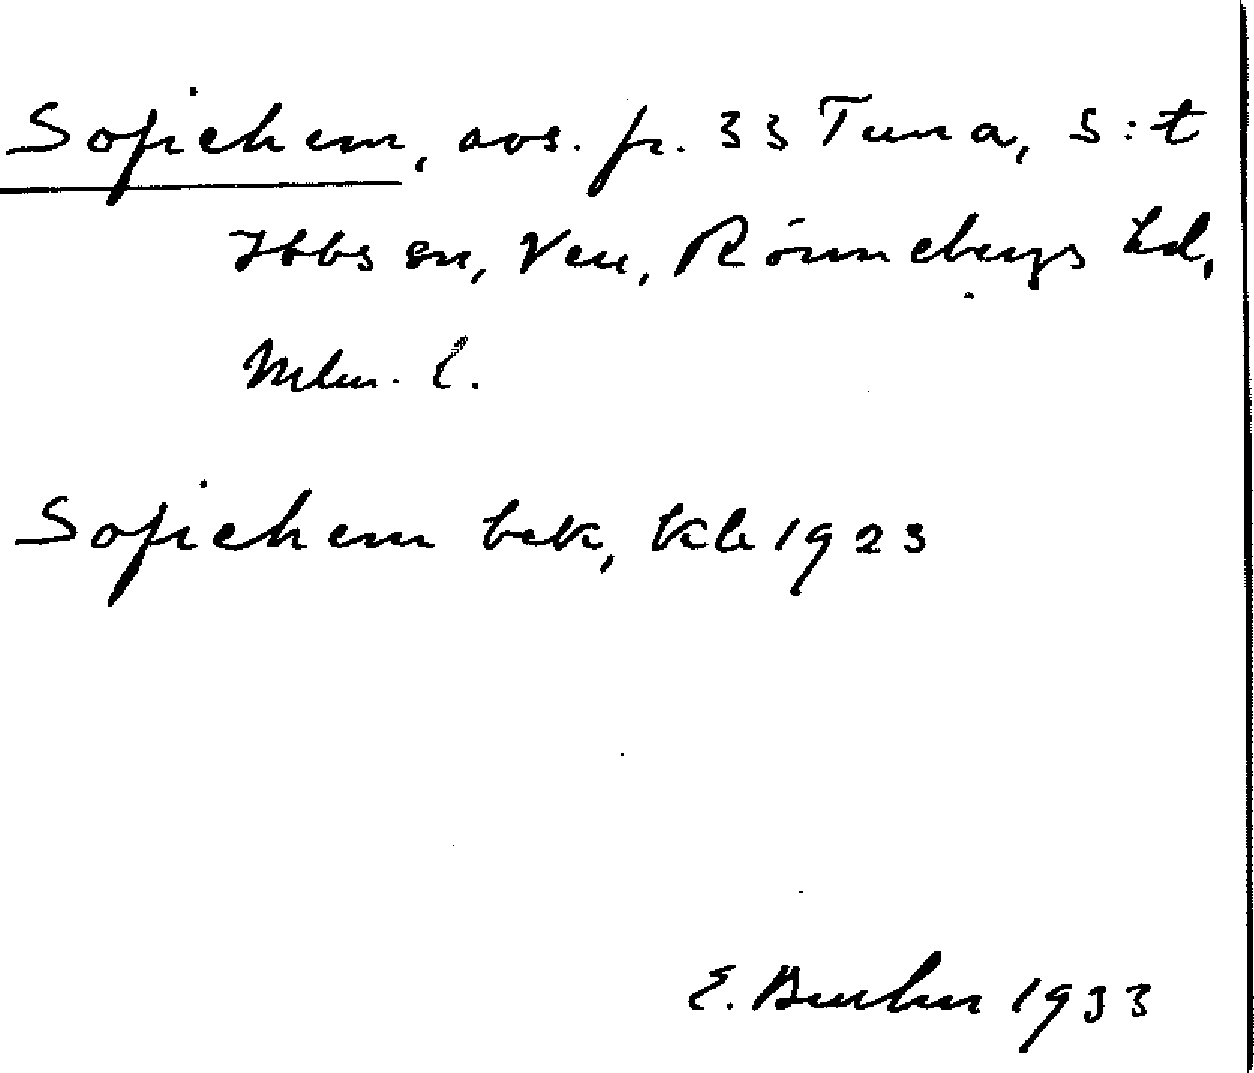 Sofiehem, avs. fr. 33 Tuna, S:t
Ibbs sn, Ven, Rönnebergs hd,
Mlm. l.
Sofiehem bek, Kb 1923
E. 1933